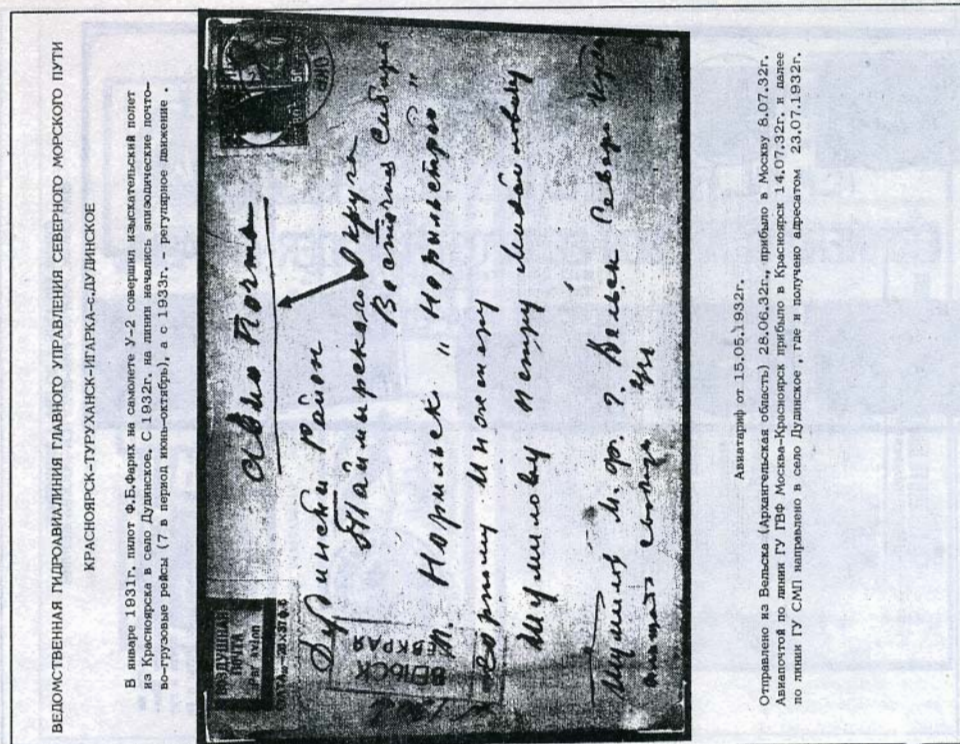 ВЕДОМСТВЕННАЯ ГИДРОАВИАЛИНИЯ ГЛАВНОГО УПРАВЛЕНИЯ СЕВЕРНОГО МОРСКОГО ПУТИ
КРАСНОЯРСК-ТУРУХАНСК-ИГАРКА-с.ДУДИНСКОЕ
В январе 1931г. пилот Ф.Б.Фарих на самолете У-2 совершил изыскательский полет
из Красноярска в село Дудинское. С 1932г. на линии начались эпизодические почто-
во-грузовые рейсы (7 в период июнь-октябрь), а с 1933г. - регулярное движение .
Авио Почта
ВОЗДУШНАЯ
ПОЧТА
Par avion
Дудински район
Таймирского Округа
Восточн Сибири
п. Норильск "Норильстрой"
ВЕЛЬСК
СЕВКРАЯ
горному Инженеру
Шумилову Петру Михайловичу
Шумилов М. Ф. г. Вельск Северн Края
площадь свободы
Авиатариф от 15.05.1932г.
Отправлено из Вельска (Архангельская область) 28.06.32г., прибыло в Москву 8.07.32г.
Авиапочтой по линии ГУ ГВФ Москва-Красноярск прибыло в Красноярск 14.07.32г. и далее
по линии ГУ СМП направлено в село Дудинское , где и получено адресатом 23.07.1932г.